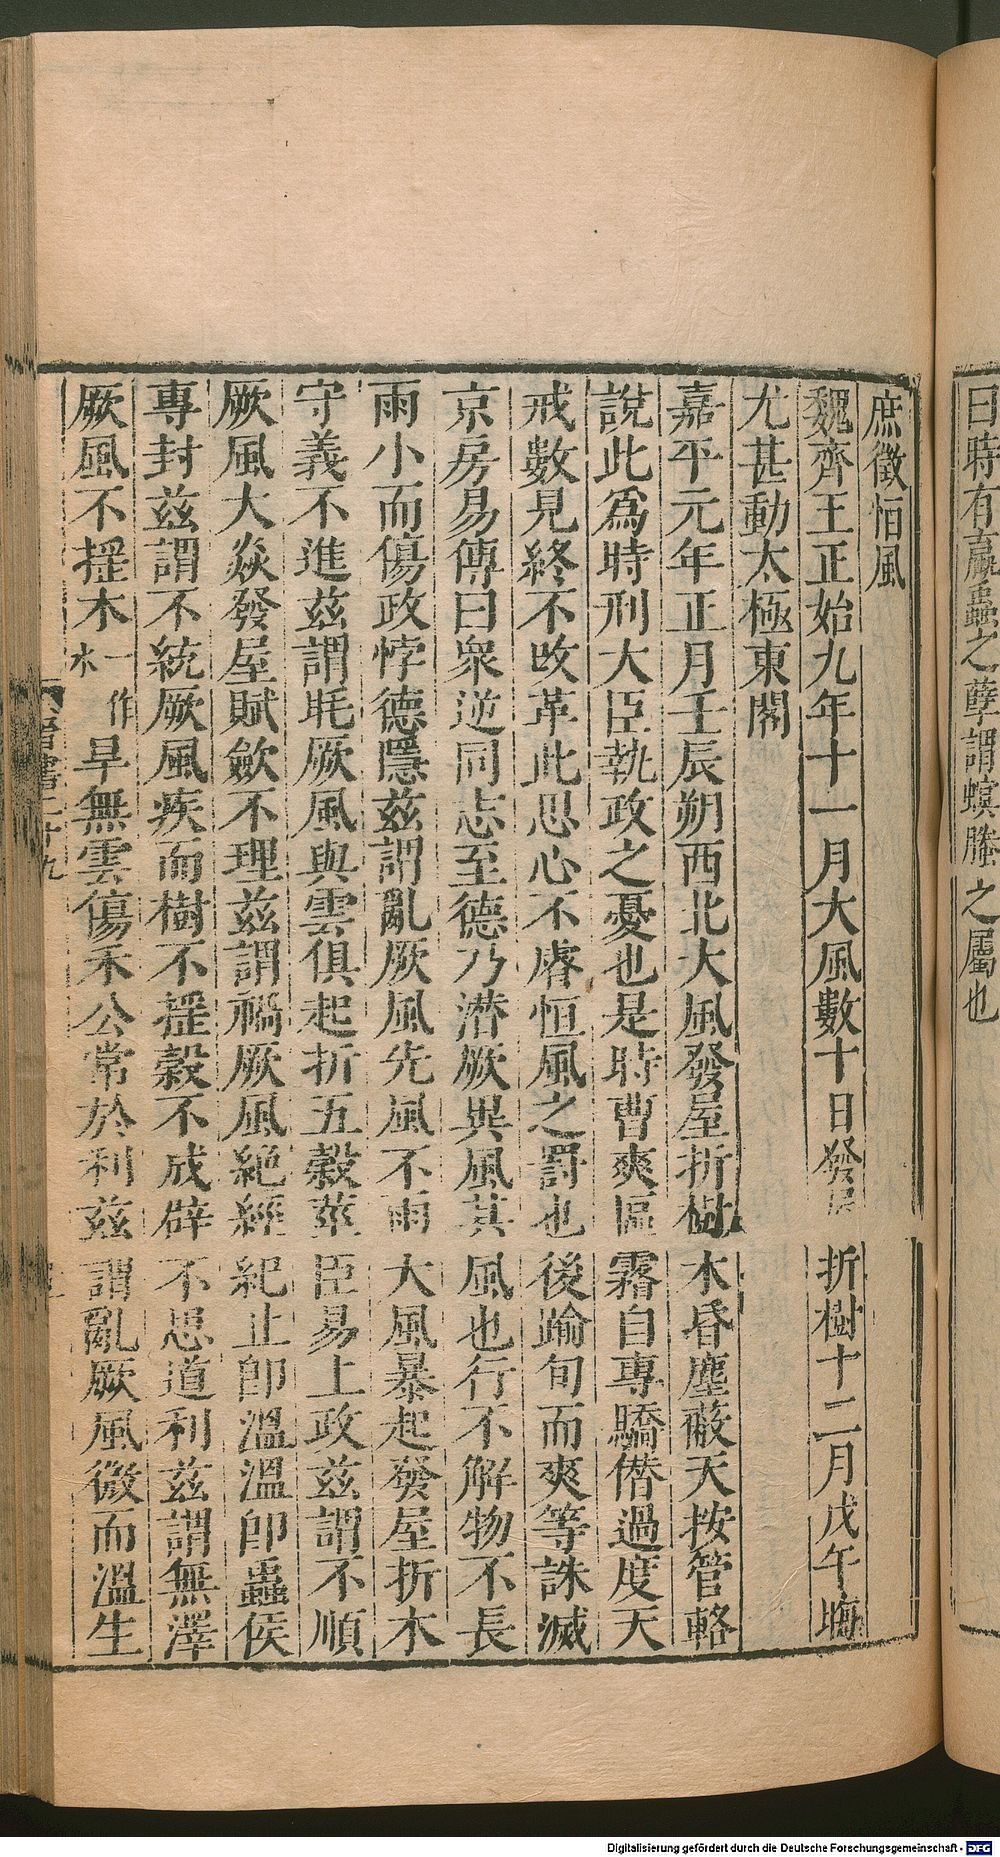 曰時有蠃蟲之孽謂螟螣之屬也
庶徵恒風
魏齊王正始九年十一月大風數十日發屋折樹十二月戊午晦
尤甚動太極東閣
嘉平元年正月壬辰朔西北大風發屋折樹木昏塵蔽天按管輅
說此爲時刑大臣執政之憂也是時曹爽區霿自專驕僭過度天
戒數見終不改革此思心不睿恒風之罰也後踰旬而爽等誅滅
京房易傳曰衆逆同志至德乃潛厥異風其風也行不解物不長
雨小而傷政悖德隱茲謂亂厥風先風不雨大風暴起發屋折木
守義不進茲謂眊厥風與雲俱起折五穀莖臣易上政茲謂不順
厥風大焱發屋賦斂不理茲謂禍厥風絕經紀止卽溫溫卽蟲侯
專封茲謂不統厥風疾而樹不搖穀不成辟不思道利茲謂無澤
厥風不搖木一作水旱無雲傷禾公常於利茲謂亂厥風微而溫生
晉書二十九
Digitalisierung gefördert durch die Deutsche Forschungsgemeinschaft - DFG